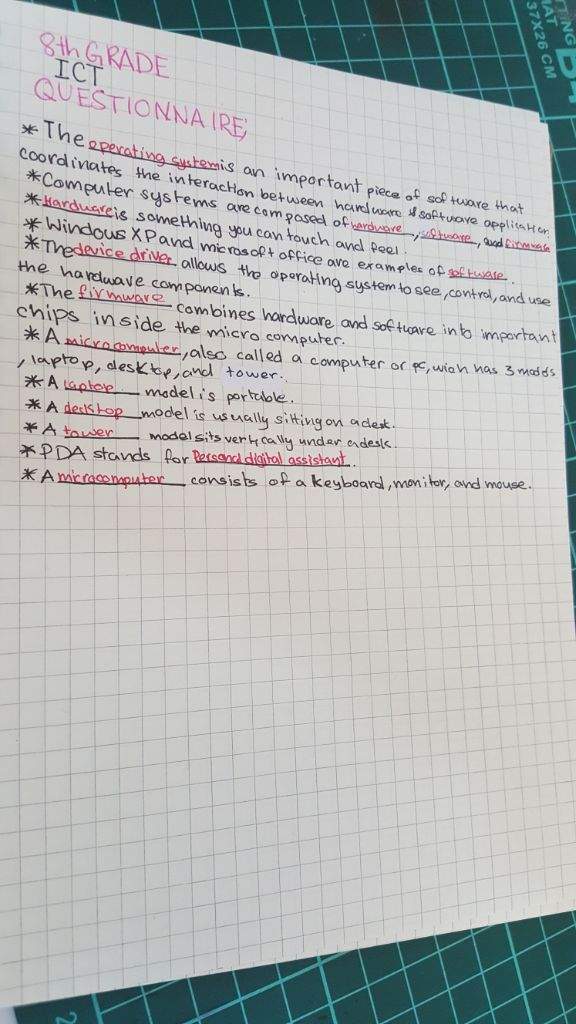 8th GRADE
ICT
QUESTIONNAIRE;
* The operating system is an important piece of software that
coordinates the interaction between hardware & software application
* Computer systems are composed of hardware, software, and firmware
* Hardware is something you can touch and feel.
* Windows XP and microsoft office are examples of software.
* The device driver allows the operating system to see, control, and use
the hardware components.
* The firmware combines hardware and software into important
chips inside the micro computer.
* A microcomputer, also called a computer or pc, wich has 3 modds
, laptop, desktop, and tower.
* A laptop model is portable.
* A desktop model is usually sitting on a desk.
* A tower model sits vertically under a desk.
* PDA stands for Personal digital assistant.
* A microcomputer consists of a keyboard, monitor, and mouse.
37X26 CM